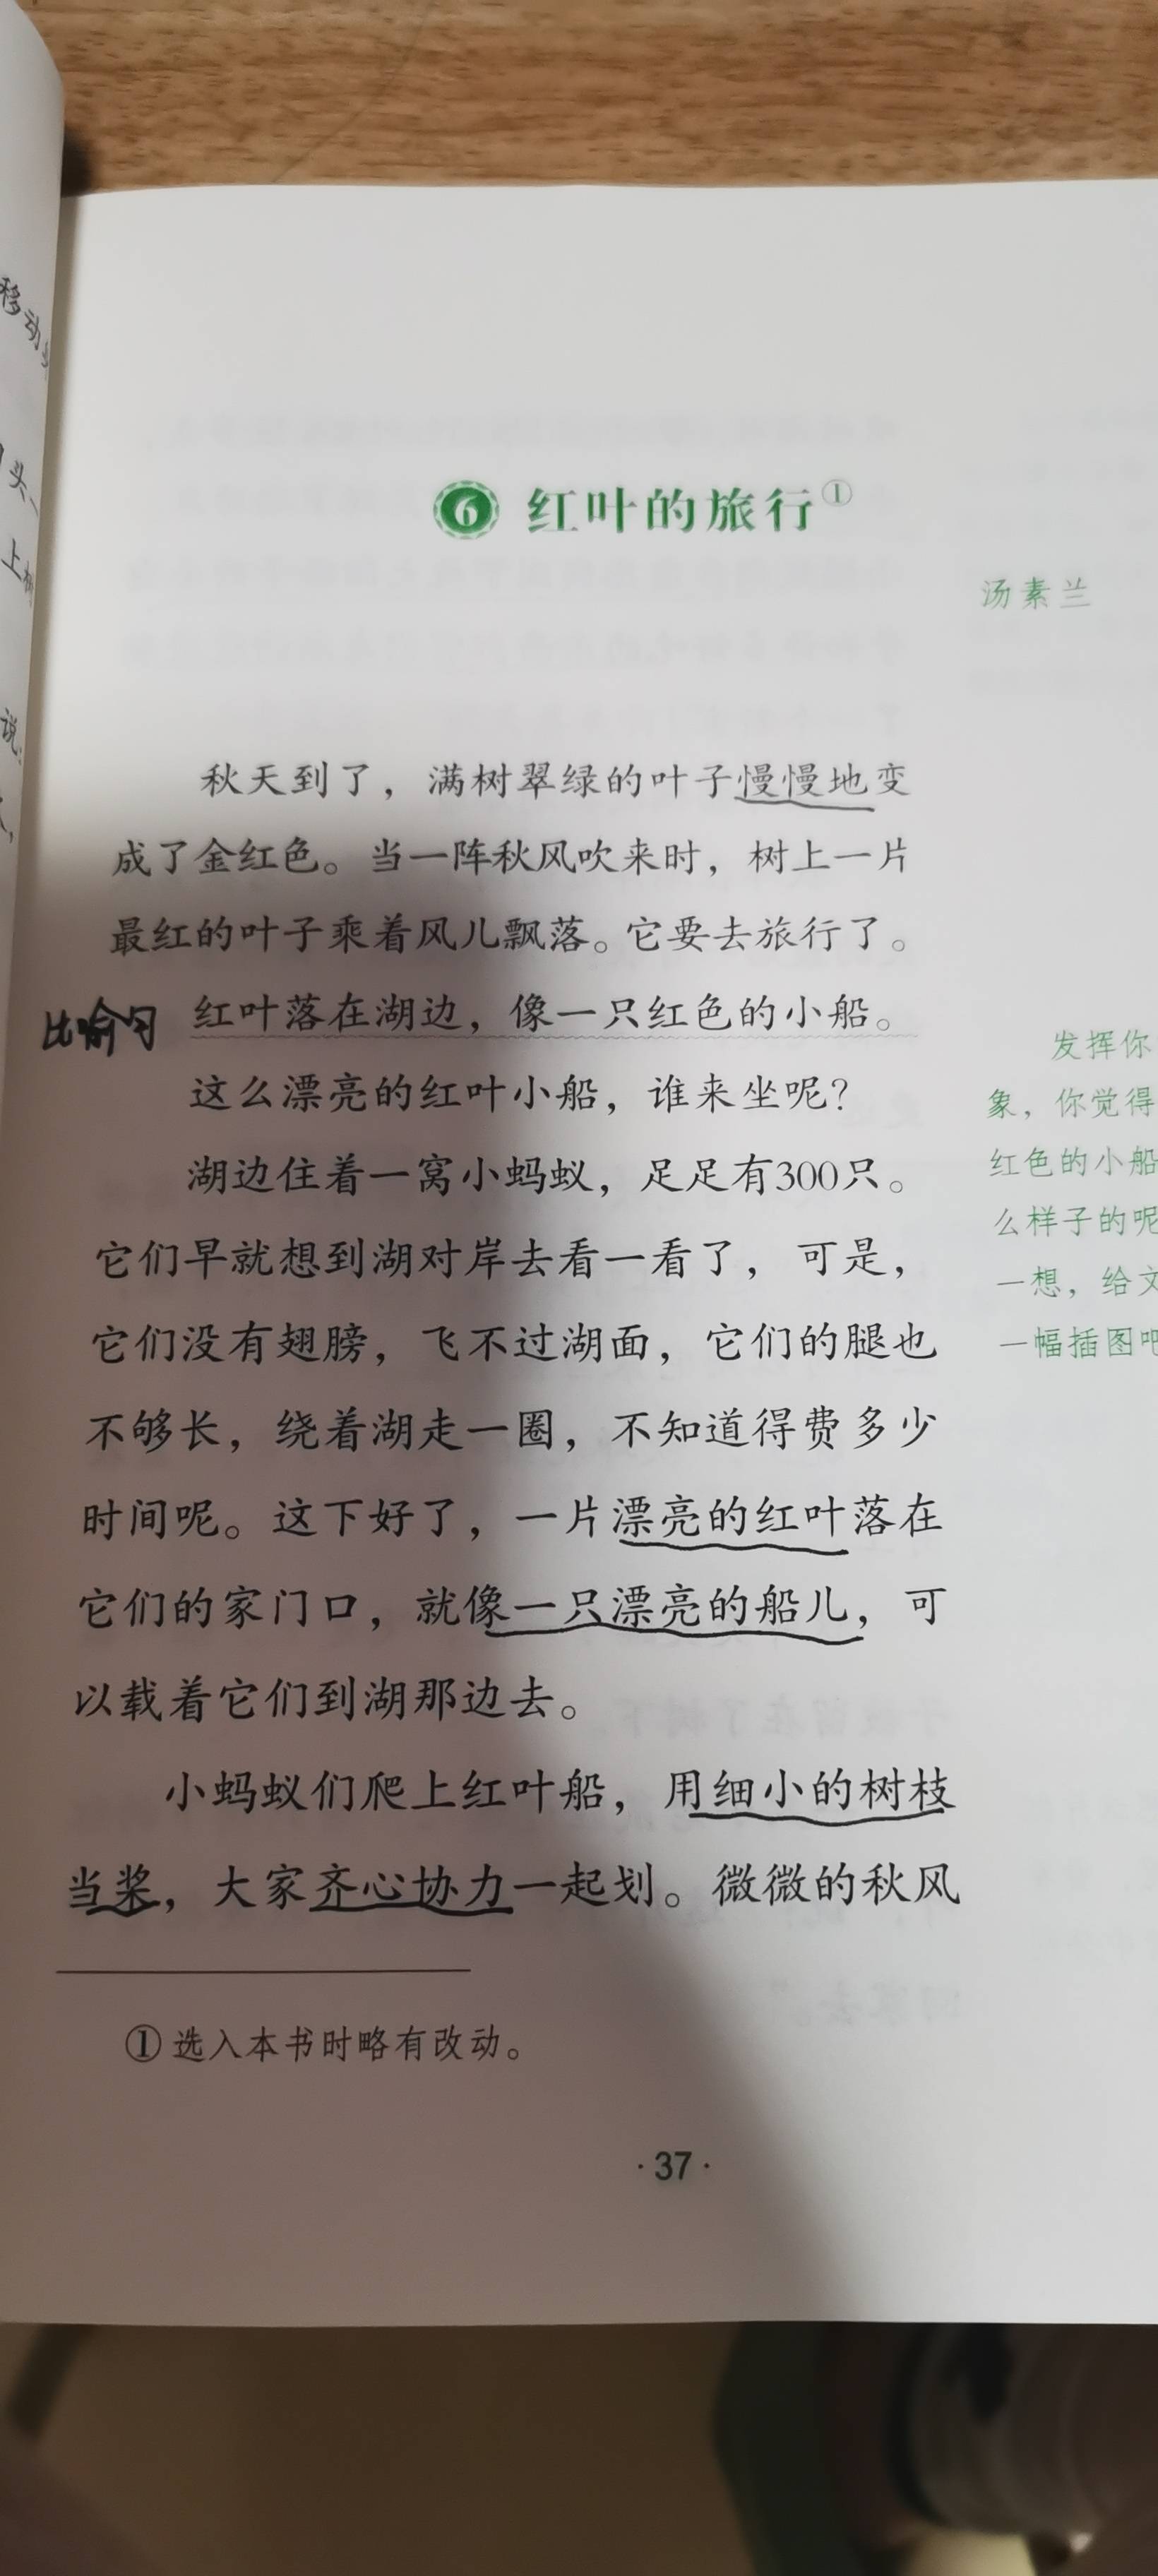 移动
头
上树
说：
6 红叶的旅行①
汤素兰
秋天到了，满树翠绿的叶子慢慢地变
成了金红色。当一阵秋风吹来时，树上一片
最红的叶子乘着风儿飘落。它要去旅行了。
比喻句 红叶落在湖边，像一只红色的小船。
这么漂亮的红叶小船，谁来坐呢？
湖边住着一窝小蚂蚁，足足有300只。
它们早就想到湖对岸去看一看了，可是，
它们没有翅膀，飞不过湖面，它们的腿也
不够长，绕着湖走一圈，不知道得费多少
时间呢。这下好了，一片漂亮的红叶落在
它们的家门口，就像一只漂亮的船儿，可
以载着它们到湖那边去。
小蚂蚁们爬上红叶船，用细小的树枝
当桨，大家齐心协力一起划。微微的秋风
发挥你
象，你觉得
红色的小船
么样子的呢
一想，给文
一幅插图吧
①选入本书时略有改动。
·37·